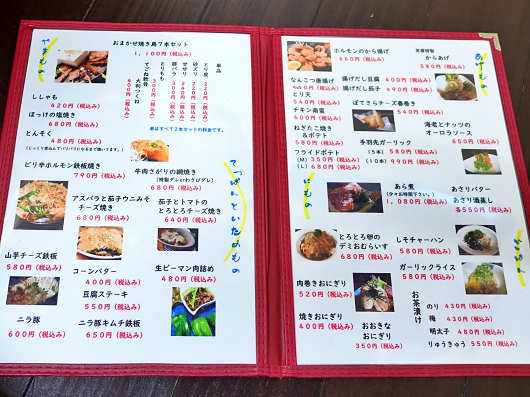 やきもの
おまかせ焼き鳥7本セット
1,100円(税込み)
単品
とり皮 220円(税込み)
砂ズリ 220円(税込み)
せせり
豚バラ
とりもも
つくね
てごね軟骨
串はすべて2本セットの料金です。
ししゃも
420円(税込み)
ほっけの塩焼き
680円(税込み)
とんそく
480円(税込み)
ピリ辛ホルモン鉄板焼き
790円(税込み)
牛肉さがりの網焼き
680円(税込み)
てっぱんといためもの
アスパラと茄子ウニみそ
チーズ焼き
680円(税込み)
茄子とトマトの
とろとろチーズ焼き
640円(税込み)
山芋チーズ鉄板
580円(税込み)
コーンバター
400円(税込み)
豆腐ステーキ
550円(税込み)
生ピーマン肉詰め
480円(税込み)
ニラ豚
600円(税込み)
ニラ豚キムチ鉄板
650円(税込み)
ホルモンのから揚げ
660円(税込み)
からあげ
580円(税込み)
なんこつ唐揚げ
とり天
540円(税込み)
チキン南蛮
600円(税込み)
ねぎたこ焼き
&ポテト
580円(税込み)
フライドポテト
(M)350円(税込み)
(L)680円(税込み)
揚げだし豆腐
430円(税込み)
揚げだし茄子
490円(税込み)
ぽてさらチーズ春巻き
540円(税込み)
手羽先ガーリック
(5本)580円(税込み)
(10本)990円(税込み)
海老とナッツの
オーロラソース
650円(税込み)
あら煮
(少々お時間下さい。)
1,080円(税込み)
あさりバター
あさり酒蒸し
各550円(税込み)
とろとろ卵の
デミおむらいす
680円(税込み)
しそチャーハン
580円(税込み)
ガーリックライス
580円(税込み)
肉巻きおにぎり
520円(税込み)
焼きおにぎり
400円(税込み)
おおきな
おにぎり
350円(税込み)
お茶漬け
のり 430円(税込み)
梅 430円(税込み)
明太子 480円(税込み)
りゅうきゅう 550円(税込み)